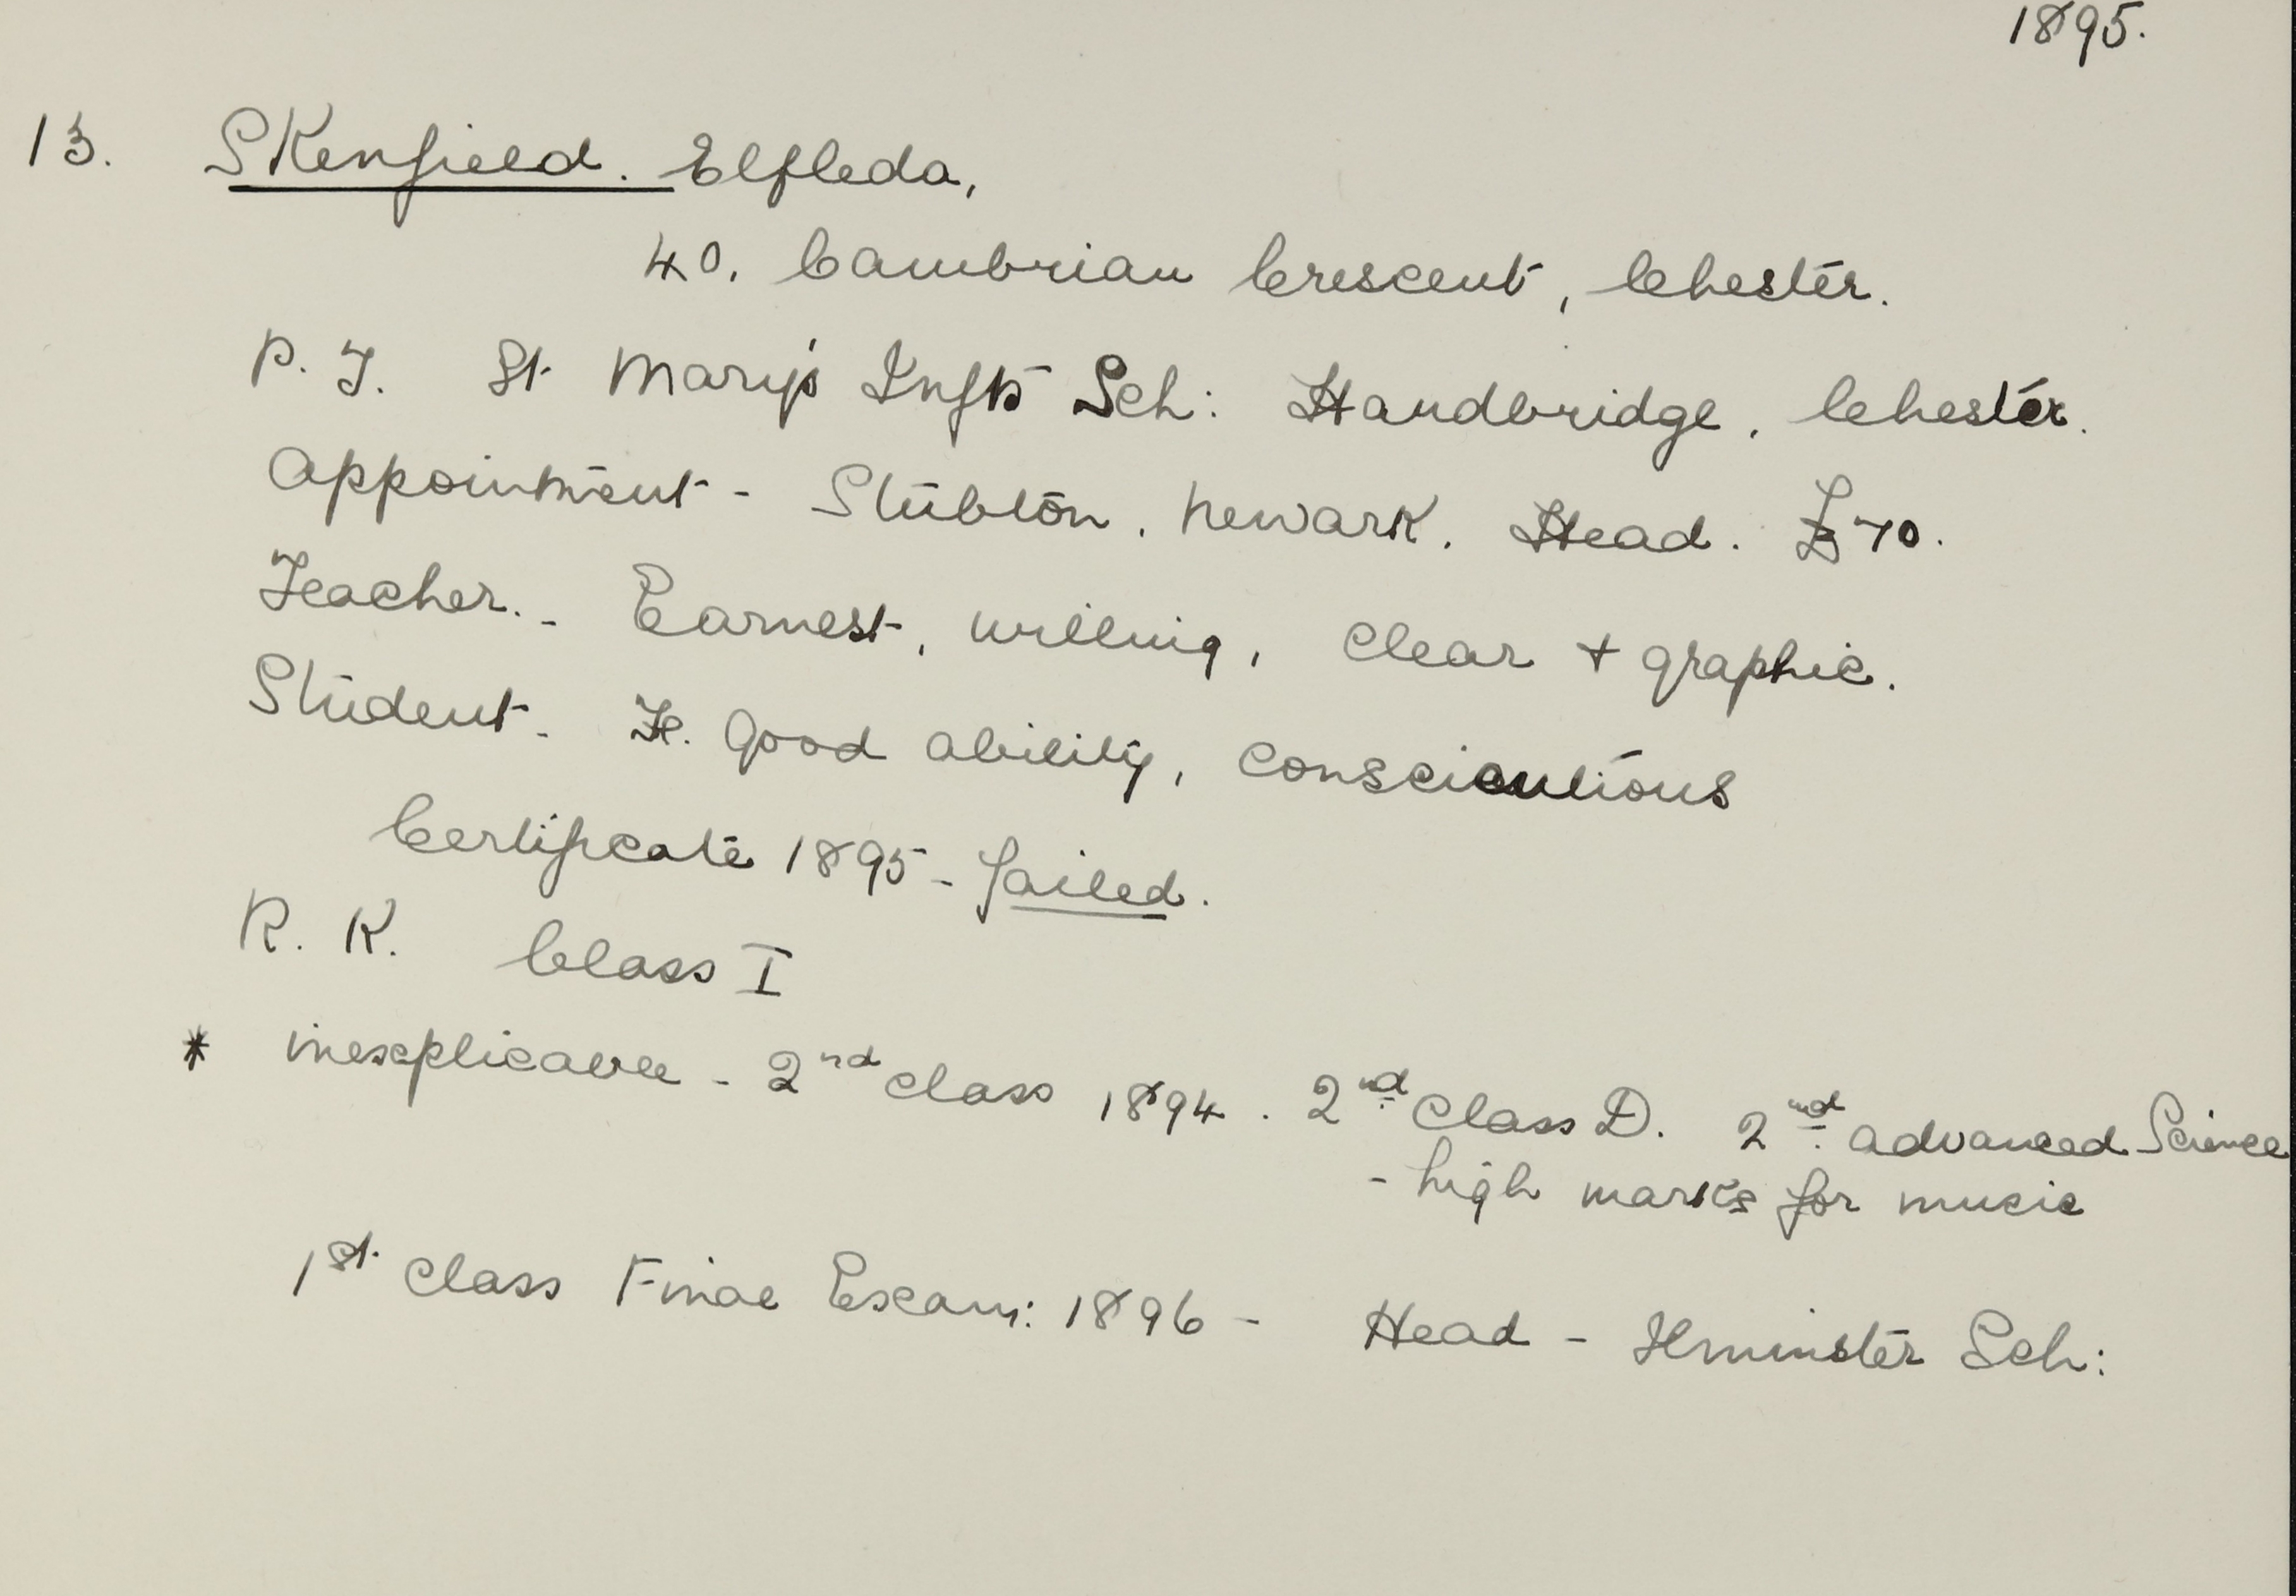 1895.
13. Skenfield. Elfleda,
40, Cambrian Crescent, Chester.
P. T. St Mary's Infts Sch: Handbridge, Chester.
Appointment - Stubton, Newark. Head. £70.
Teacher. - Earnest, willing, clear + graphic.
Student - good ability, conscientious
Certificate 1895 - failed.
R. K. Class I
* inexplicable - 2nd class 1894. 2nd Class D. 2nd advanced Science
- high marks for music
1st class Final Exam: 1896 - Head - Ilminster Sch: